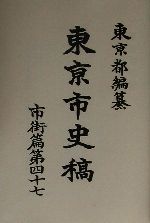 東京都編纂
東京市史稿
市街篇第四十七